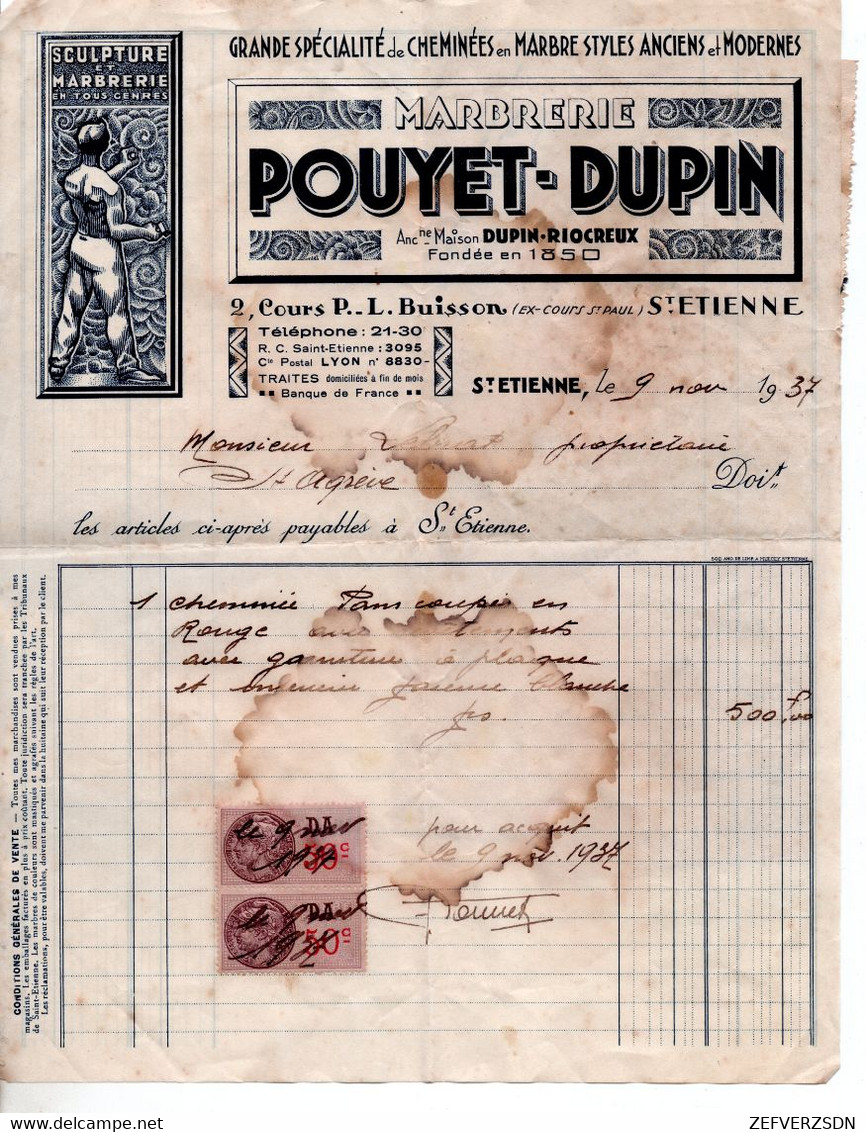 SCULPTURE
ET
MARBRERIE
EN TOUS GENRES
GRANDE SPÉCIALITÉ de CHEMINÉES en MARBRE STYLES ANCIENS et MODERNES
MARBRERIE
POUYET-DUPIN
Ancne Maison DUPIN-RIOCREUX
Fondée en 1850
2, Cours P.-L. Buisson (EX-COURS ST PAUL) ST ETIENNE
Téléphone : 21-30
R. C. Saint-Etienne : 3095
Cte Postal LYON n° 8830-
TRAITES domiciliées à fin de mois
Banque de France
ST ETIENNE, le 9 nov 1937
Monsieur propriétaire
St Agrève Doit
les articles ci-après payables à St Etienne.
1 cheminée Pans coupés en
Rouge
avec garniture à plaque
et blanche
500f,00
DA
50c
le 9 nov
1937
pour acquit
le 9 nov. 1937
DA
50c
le 9 nov
1937
CONDITIONS GÉNÉRALES DE VENTE. — Toutes mes marchandises sont vendues prises à mes
magasins. Les emballages facturés en plus à prix coûtant. Toute juridiction sera tranchée par les Tribunaux
de Saint-Etienne. Les marbres de couleurs sont mastiqués et agrafés suivant les règles de l'art.
Les réclamations, pour être valables, doivent me parvenir dans la huitaine qui suit leur réception par le client.
ZEFVERZSDN